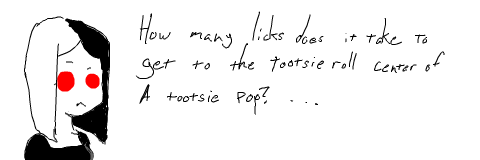 How many licks does it take to
get to the tootsie roll center of
A tootsie pop? ...